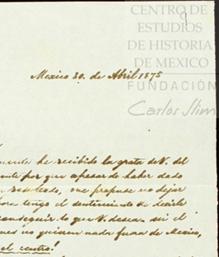 CENTRO DE
ESTUDIOS
DE HISTORIA
DE MEXICO
FUNDACIÓN
Carlos Slim
Mexico 30. de Abril 1875
he recibido la grata de V. del
por que apesar de haber dado
me propuse no dejar
tengo el sentimiento de decirle
conseguir lo que V. desea, así el
quieren nada fuera de Mexico,
el centro!